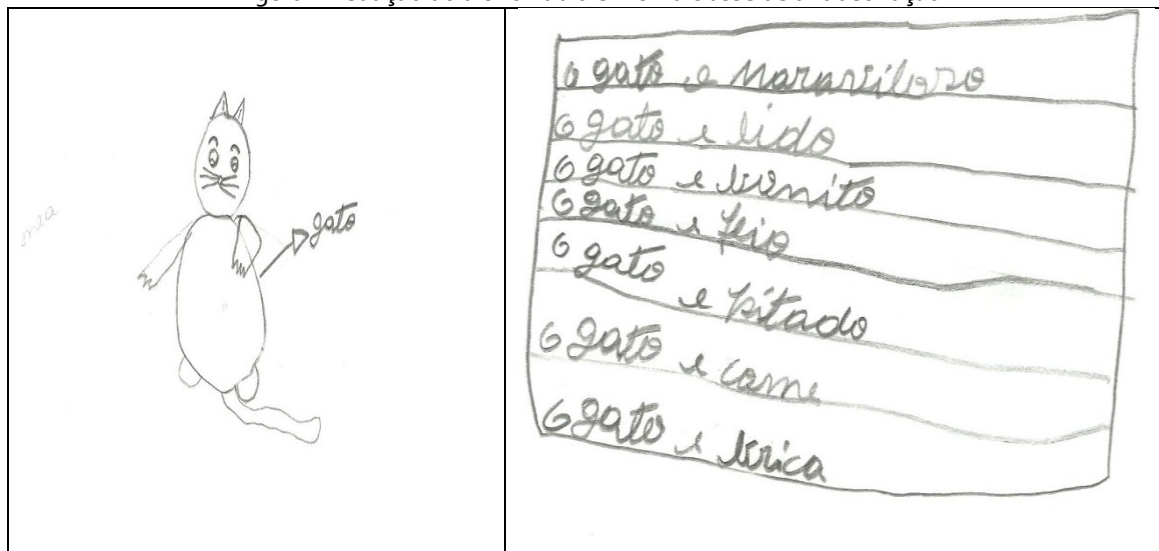 gato
o gato e maravilozo
o gato e lido
o gato e bonito
o gato e feio
o gato e pitado
o gato e come
o gato e brica